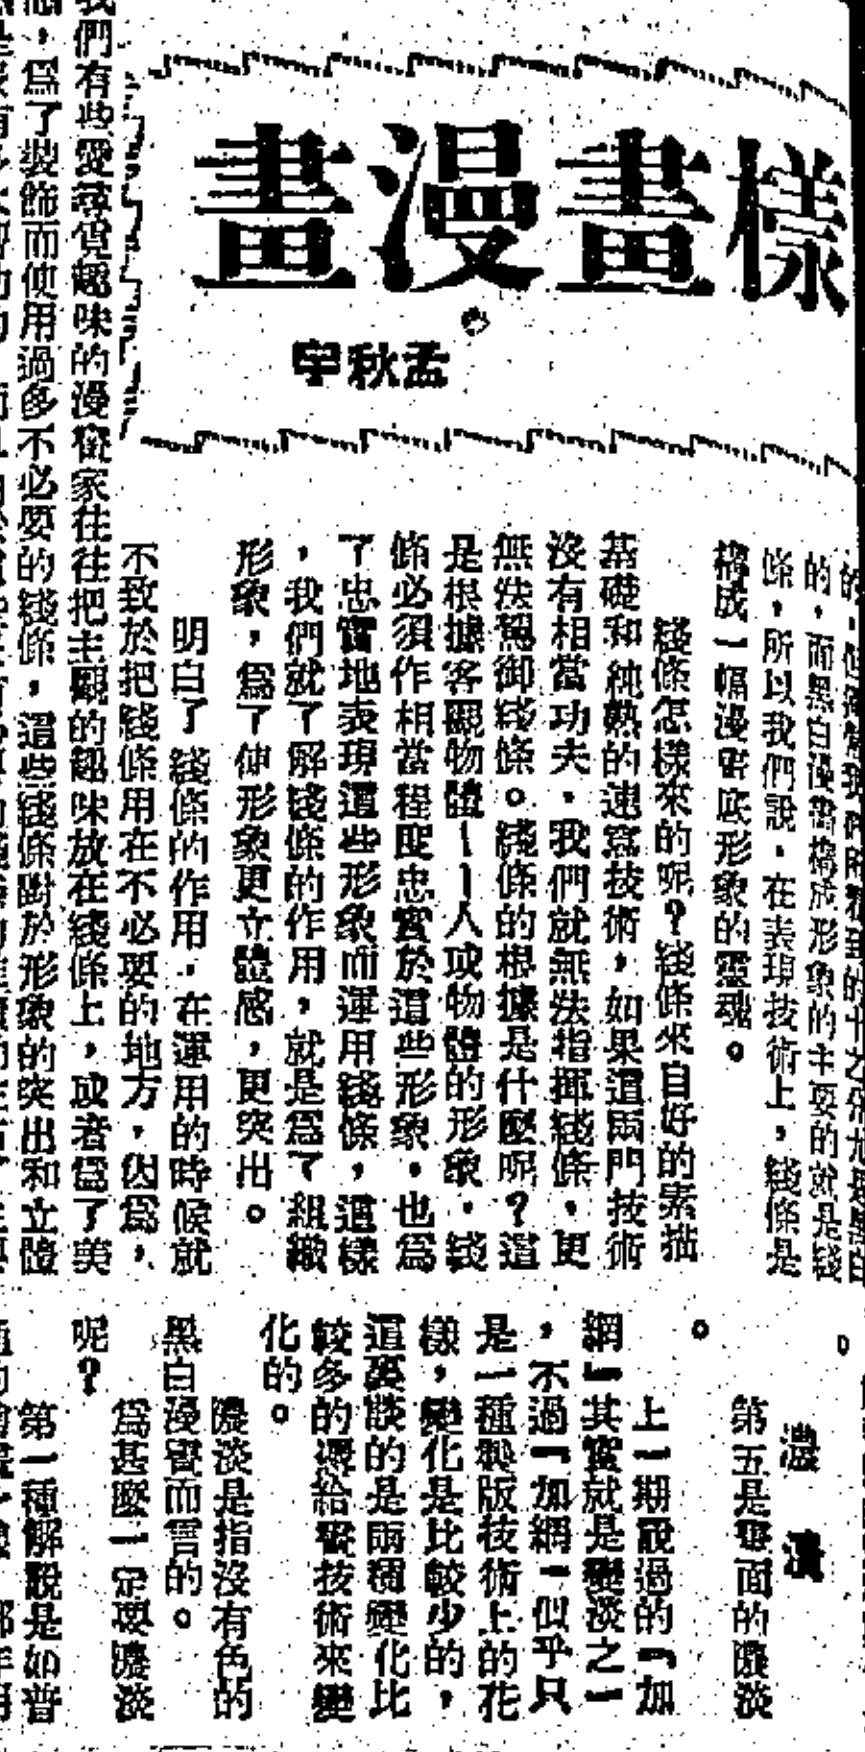 樣畫漫畫
孟秋宇
的，而黑白漫畫構成形象的主要的就是綫
條，所以我們說，在表現技術上，綫條是
構成一幅漫畫底形象的靈魂。
綫條怎樣來的呢？綫條來自好的素描
基礎和純熟的速寫技術，如果這兩門技術
沒有相當功夫，我們就無法指揮綫條，更
無法駕御綫條。綫條的根據是什麼呢？這
是根據客觀物體——人或物體的形象，綫
條必須作相當程度忠實於這些形象，也爲
了忠實地表現這些形象而運用綫條，這樣
，我們就了解綫條的作用，就是爲了組織
形象，爲了使形象更立體感，更突出。
明白了綫條的作用，在運用的時候就
不致於把綫條用在不必要的地方，因爲，
我們有些愛尋覓趣味的漫畫家往往把主觀的趣味放在綫條上，或者爲了美
感，爲了裝飾而使用過多不必要的綫條，這些綫條對於形象的突出和立體
濃淡
第五是畫面的濃淡
。
上一期說過的『加
網』其實就是變淡之一
，不過『加網』似乎只
是一種製版技術上的花
樣，變化是比較少的，
這裏談的是兩種變化比
較多的還給畫技術來變
化的。
濃淡是指沒有色的
黑白漫畫而言的。
爲甚麼一定要濃淡
呢？
第一種解說是如普